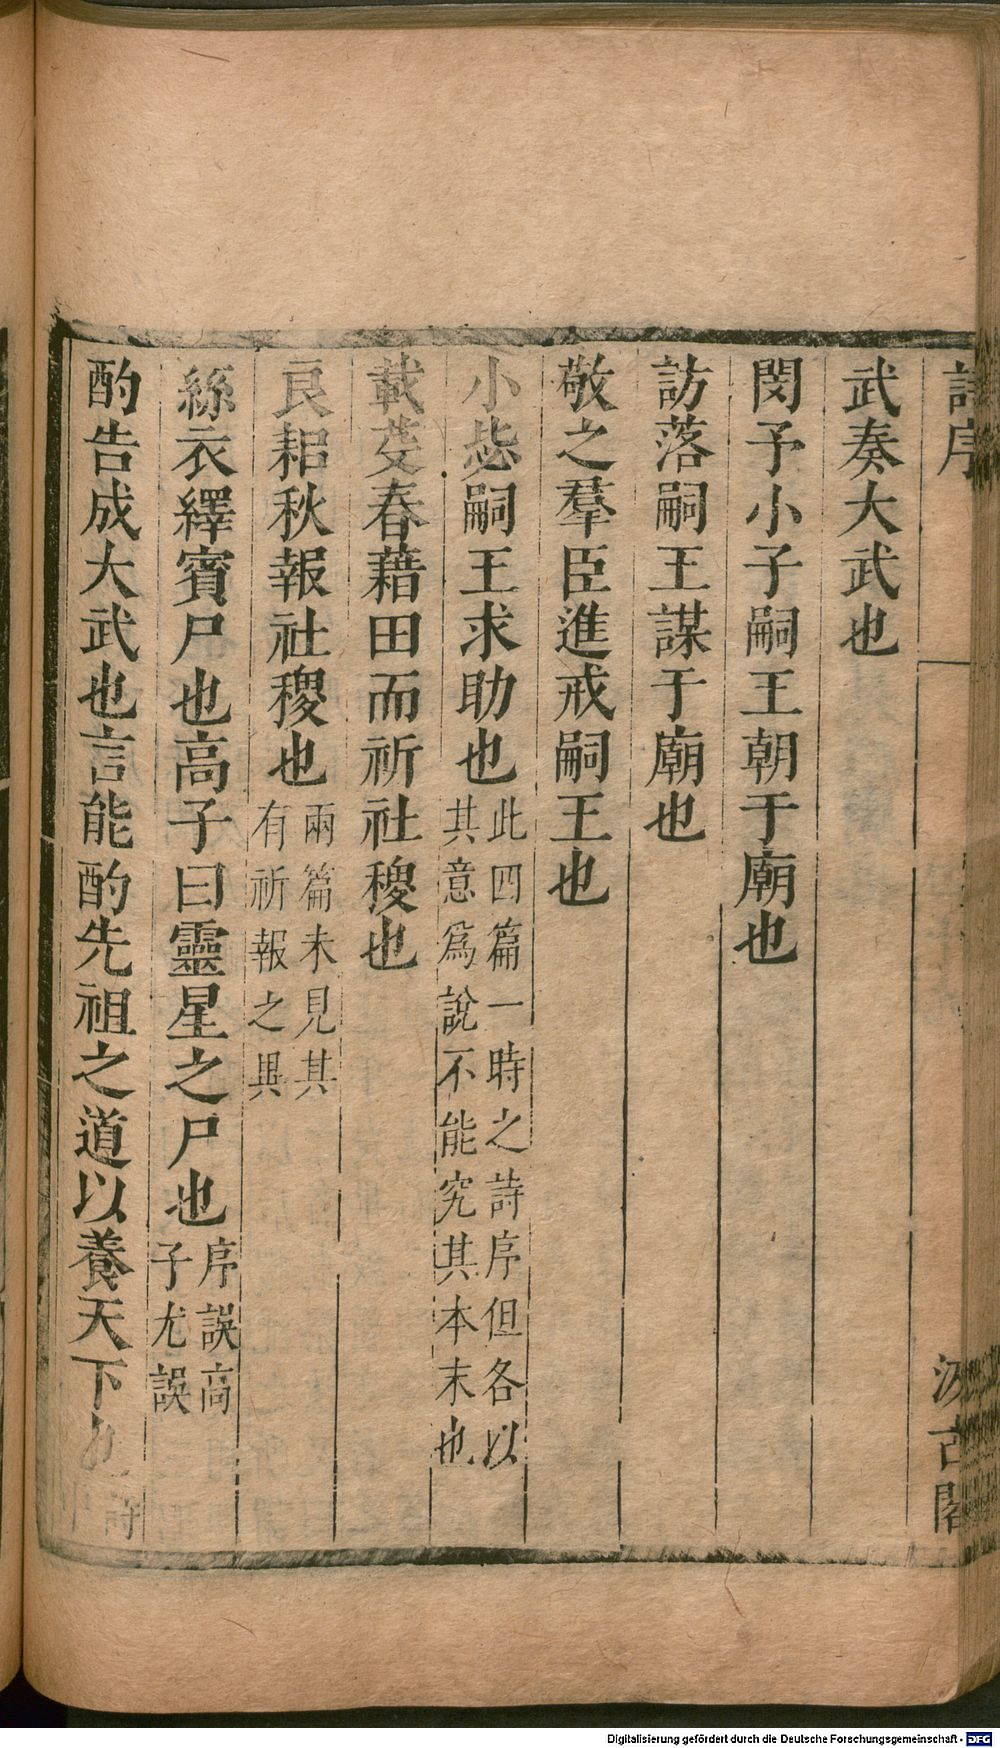 詩序
汲古閣
武奏大武也
閔予小子嗣王朝于廟也
訪落嗣王謀于廟也
敬之羣臣進戒嗣王也
小毖嗣王求助也此四篇一時之詩序但各以
其意爲說不能究其本末也
載芟春藉田而祈社稷也
良耜秋報社稷也兩篇未見其
有祈報之異
絲衣繹賓尸也高子曰靈星之尸也序誤高
子尤誤
酌告成大武也言能酌先祖之道以養天下也詩
Digitalisierung gefördert durch die Deutsche Forschungsgemeinschaft - DFG